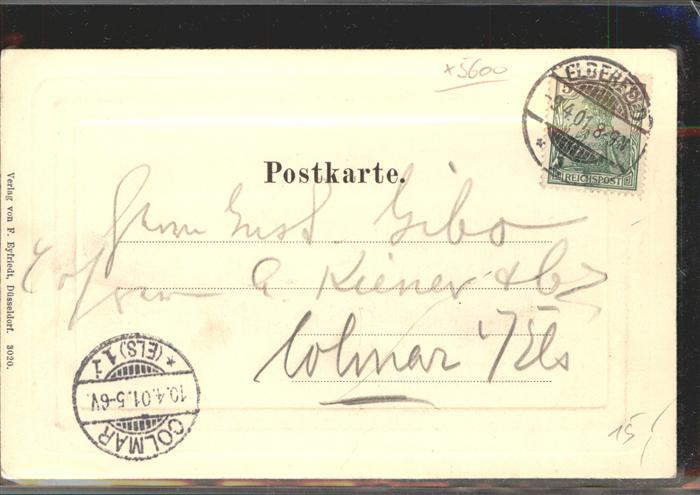 x5600
ELBERFELD
-9.4.01.8-9N.
* 1
5
REICHSPOST
Postkarte.
Herrn Gust. Gibo
Herrn A. Kiener & Co
Colmar i/Els
Verlag von F. Eyfriedt, Düsseldorf. 3020.
COLMAR
10.4.01.5-6V.
* (ELS) 1 i
15,